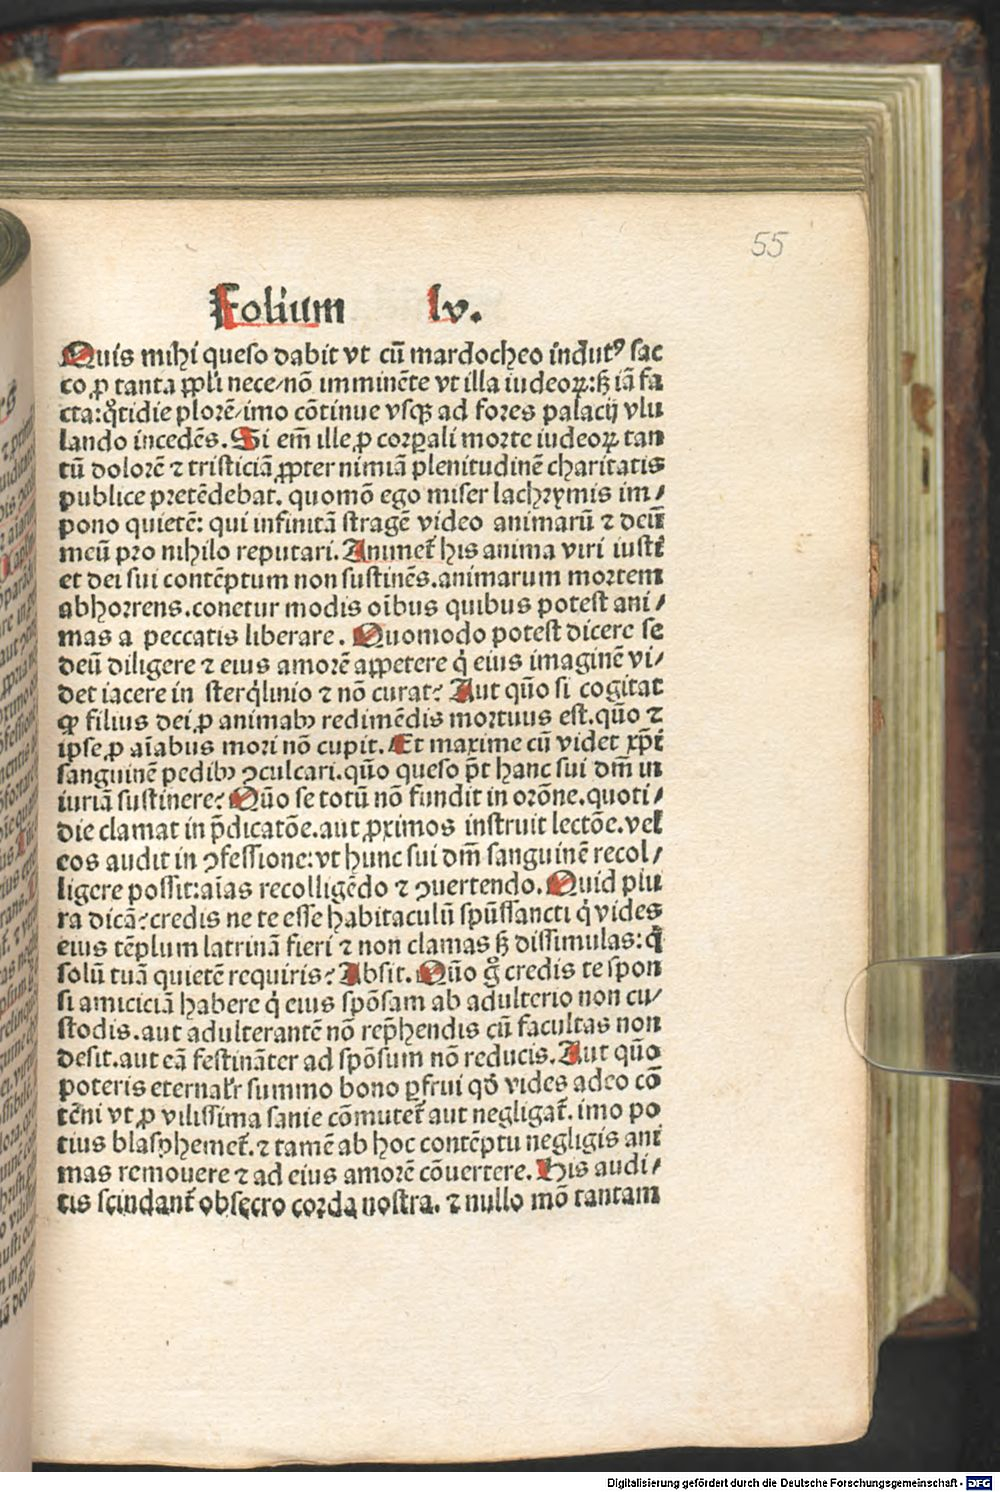 55
Folium lv.
Quis mihi queso dabit vt cū mardocheo indutꝰ sac
co ꝓ tanta ꝓpli nece/nō imminēte vt illa iudeoꝝ:sꝫ iā fa
cta:qͦtidie plorē/imo cōtinue vsqꝫ ad fores palacij vlu
lando incedēs. Si em̄ ille ꝓ corꝑali morte iudeoꝝ tan
tū dolorē ⁊ tristiciā ꝓpter nimiā plenitudinē charitatis
publice pretēdebat. quomō ego miser lachrymis im/
pono quietē: qui infinitā stragē video animarū ⁊ deū
meū pro nihilo reputari. Animet̄ his anima viri iusti
et dei sui contēptum non sustinēs.animarum mortem
abhorrens.conetur modis oībus quibus potest ani/
mas a peccatis liberare. Quomodo potest dicere se
deū diligere ⁊ eius amorē appetere qͥ eius imaginē vi/
det iacere in sterqͥlinio ⁊ nō curat? Aut quō si cogitat
ꝙ filius dei ꝓ animabꝫ redimēdis mortuus est.quō ⁊
ipse ꝓ aīabus mori nō cupit. Et maxime cū videt xp̄i
sanguinē pedibꝫ ꝯculcari.quō queso pōt hanc sui dn̄i in
iuriā sustinere? Quō se totū nō fundit in orōne.quoti/
die clamat in p̄dicatōe.aut ꝓximos instruit lectōe.vel
eos audit in ꝯfessione:vt hunc sui dn̄i sanguinē recol/
ligere possit:aīas recolligēdo ⁊ ꝯuertendo. Quid plu
ra dicā?credis ne te esse habitaculū spūssancti qͥ vides
eius tēplum latrinā fieri ⁊ non clamas sꝫ dissimulas:qͥ
solū tuā quietē requiris? Absit. Quō gͦ credis te spon
si amiciciā habere qͥ eius spōsam ab adulterio non cu/
stodis.aut adulterantē nō rep̄hendis cū facultas non
desit.aut eā festināter ad spōsum nō reducis. Aut quō
poteris eternalr̄ summo bono ꝑfrui qd̄ vides adeo cō
tēni vt ꝓ vilissima sanie cōmutet̄ aut negligat̄. imo po
tius blasphemet̄.⁊ tamē ab hoc contēptu negligis ani
mas remouere ⁊ ad eius amorē cōuertere. His audi/
tis scindant̄ obsecro corda nostra. ⁊ nullo mō tantam
Digitalisierung gefördert durch die Deutsche Forschungsgemeinschaft - DFG